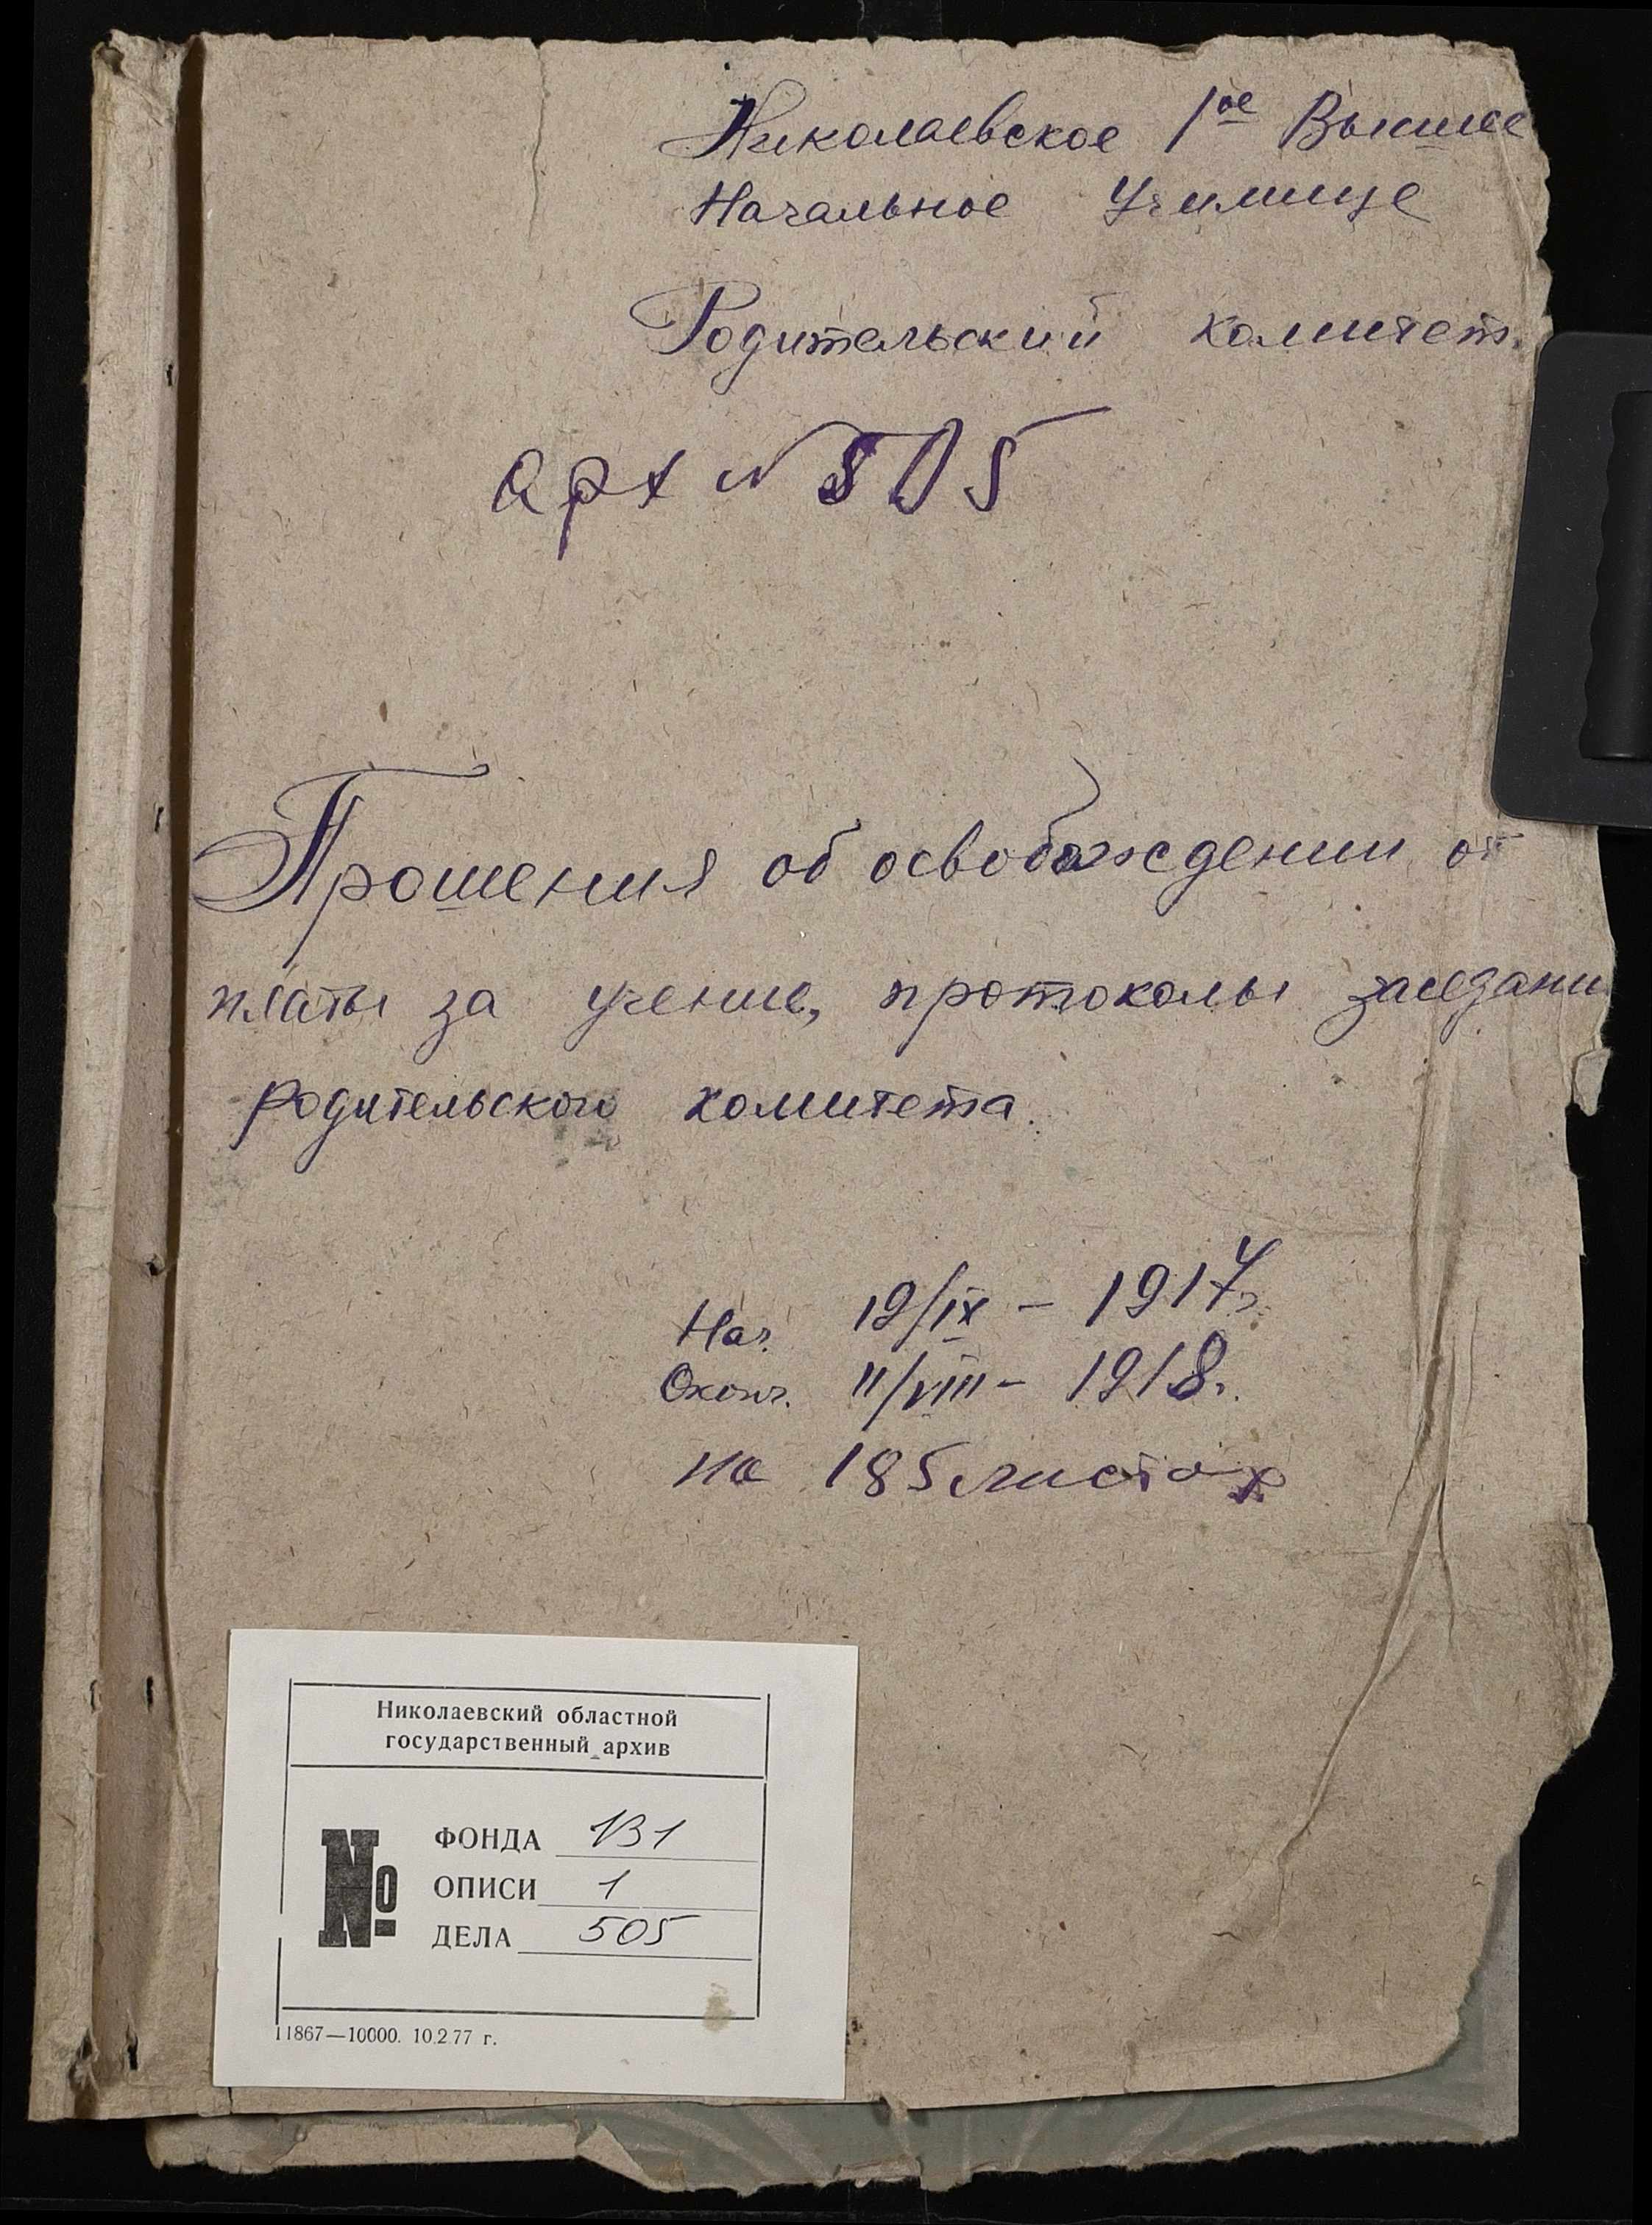 Николаевское 1ое Высшее
Начальное Училище
Родительский комитет.
арх N 505
Прошения об освобождении от
платы за учение, протоколы заседани
родительского комитета.
Нач. 19/IX - 1917 г.
Оконч. 11/VIII - 1918.
на 185 листах
Николаевский областной
государственный архив
№
ФОНДА 131
ОПИСИ 1
ДЕЛА 505
11867—10000. 10.2.77 г.